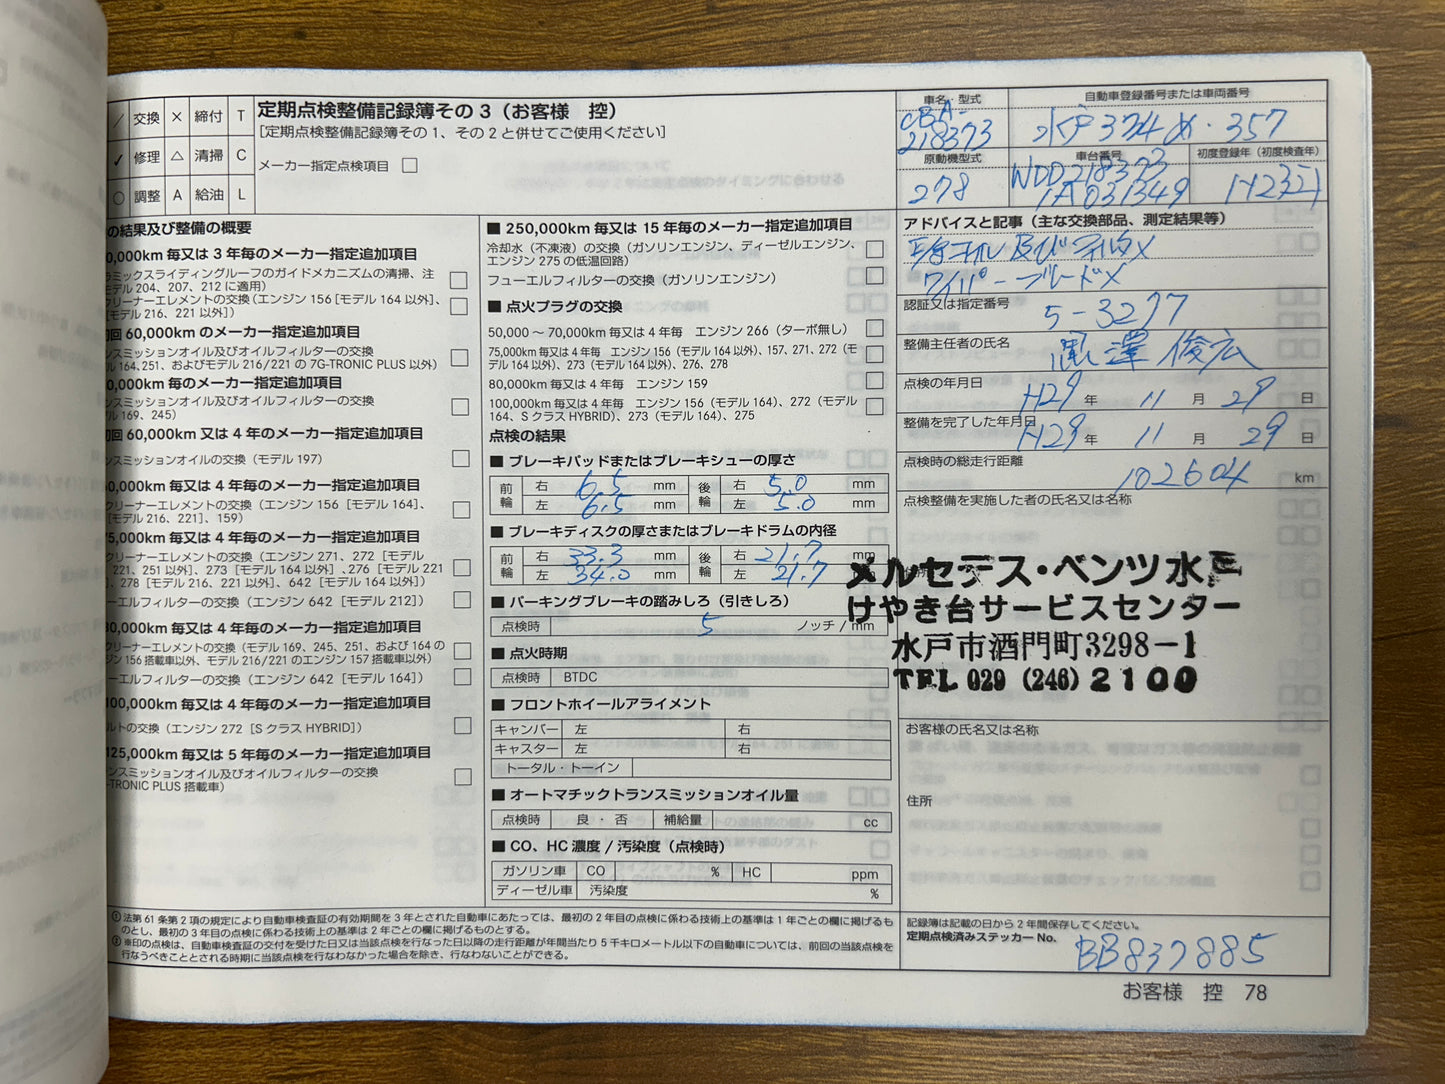 交換 × 締付 T
修理 △ 清掃 C
調整 A 給油 L
定期点検整備記録簿その3（お客様 控）
［定期点検整備記録簿その1、その2と併せてご使用ください］
メーカー指定点検項目
車名・型式
CBA-
218373
自動車登録番号または車両番号
水戸 334 め・357
原動機型式
278
車台番号
WDD218373
1A031349
初度登録年（初度検査年）
H23
の結果及び整備の概要
0,000km 毎又は 3 年毎のメーカー指定追加項目
ラミックスライディングルーフのガイドメカニズムの清掃、注
モデル 204、207、212 に適用）
クリーナーエレメントの交換（エンジン 156［モデル 164 以外］、
［モデル 216、221 以外］）
初回 60,000km のメーカー指定追加項目
ンスミッションオイル及びオイルフィルターの交換
164,251、およびモデル 216/221 の 7G-TRONIC PLUS 以外）
0,000km 毎のメーカー指定追加項目
ンスミッションオイル及びオイルフィルターの交換
ル 169、245）
初回 60,000km 又は 4 年のメーカー指定追加項目
ンスミッションオイルの交換（モデル 197）
0,000km 毎又は 4 年毎のメーカー指定追加項目
クリーナーエレメントの交換（エンジン 156［モデル 164］、
［モデル 216、221］、159）
75,000km 毎又は 4 年毎のメーカー指定追加項目
クリーナーエレメントの交換（エンジン 271、272［モデル
221、251 以外］、273［モデル 164 以外］、276［モデル 221
、278［モデル 216、221 以外］、642［モデル 164 以外］）
ーエルフィルターの交換（エンジン 642［モデル 212］）
80,000km 毎又は 4 年毎のメーカー指定追加項目
クリーナーエレメントの交換（モデル 169、245、251、および 164 の
ジン 156 搭載車以外、モデル 216/221 のエンジン 157 搭載車以外）
ーエルフィルターの交換（エンジン 642［モデル 164］）
100,000km 毎又は 4 年毎のメーカー指定追加項目
ルトの交換（エンジン 272［S クラス HYBRID］）
125,000km 毎又は 5 年毎のメーカー指定追加項目
ンスミッションオイル及びオイルフィルターの交換
-TRONIC PLUS 搭載車）
■ 250,000km 毎又は 15 年毎のメーカー指定追加項目
冷却水（不凍液）の交換（ガソリンエンジン、ディーゼルエンジン、
エンジン 275 の低温回路）
フューエルフィルターの交換（ガソリンエンジン）
■ 点火プラグの交換
50,000 ～ 70,000km 毎又は 4 年毎 エンジン 266（ターボ無し）
75,000km 毎又は 4 年毎 エンジン 156（モデル 164 以外）、157、271、272（モ
デル 164 以外）、273（モデル 164 以外）、276、278
80,000km 毎又は 4 年毎 エンジン 159
100,000km 毎又は 4 年毎 エンジン 156（モデル 164）、272（モデル
164、S クラス HYBRID）、273（モデル 164）、275
点検の結果
■ ブレーキパッドまたはブレーキシューの厚さ
前輪 右 6.5 mm 後輪 右 5.0 mm
左 6.5 mm 左 5.0 mm
■ ブレーキディスクの厚さまたはブレーキドラムの内径
前輪 右 33.3 mm 後輪 右 21.7 mm
左 34.0 mm 左 21.7
■ パーキングブレーキの踏みしろ（引きしろ）
点検時 5 ノッチ / mm
■ 点火時期
点検時 BTDC
■ フロントホイールアライメント
キャンバー 左 右
キャスター 左 右
トータル・トーイン
■ オートマチックトランスミッションオイル量
点検時 良 ・ 否 補給量 cc
■ CO、HC 濃度 / 汚染度（点検時）
ガソリン車 CO % HC ppm
ディーゼル車 汚染度 %
アドバイスと記事（主な交換部品、測定結果等）
ワイパーブレード×
認証又は指定番号
5-3277
整備主任者の氏名
澤 俊宏
点検の年月日
H29 年 11 月 29 日
整備を完了した年月日
H29 年 11 月 29 日
点検時の総走行距離
102604 km
点検整備を実施した者の氏名又は名称
メルセデス・ベンツ水戸
けやき台サービスセンター
水戸市酒門町3298－1
TEL 029 (246) 2100
お客様の氏名又は名称
住所
① 法第 61 条第 2 項の規定により自動車検査証の有効期間を 3 年とされた自動車にあたっては、最初の 2 年目の点検に係わる技術上の基準は 1 年ごとの欄に掲げるも
のとし、最初の 3 年目の点検に係わる技術上の基準は 2 年ごとの欄に掲げるものとする。
② ※印の点検は、自動車検査証の交付を受けた日又は当該点検を行なった日以降の走行距離が年間当たり 5 千キロメートル以下の自動車については、前回の当該点検を
行なうべきこととされる時期に当該点検を行なわなかった場合を除き、行なわないことができる。
記録簿は記載の日から 2 年間保存してください。
定期点検済みステッカー No.
BB837885
お客様 控 78